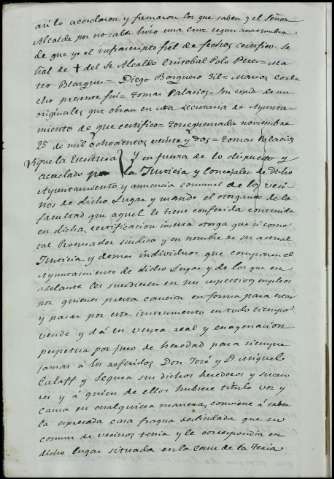 así lo acordaron y firmaron los que saben y el Señor
Alcalde por no saber hizo una cruz según acostumbra
de que yo el infraescripto fiel de fechos certifico = Se
ñal de + del Sr Alcalde Cristobal Polo = Pero = Ma
teo Blasquez = Diego Borguero Gil = Marcos Corba
cho presente fui = Tomas Palacios = Es copia de sus
originales que obran en esta Secretaria de Ayunta
miento de que certifico = Torrequemada noviembre
25 de mil ochocientos veinte y dos = Tomas Palacios
Sigue la Escritura y en fuerza de lo dispuesto y
acordado por la Justicia y Concejales de dicho
Ayuntamiento y anuencia comun de los veci
nos de dicho lugar y usando el otorgante de la
facultad que aquel le tiene conferida contenida
en dicha certificacion inserta otorga que si como
tal Procurador Sindico y en nombre de su actual
Justicia y demas individuos que componen el
Ayuntamiento de dicho lugar y de los que en
adelante les sucedieren en sus respectivos empleos
por quienes presta caucion en forma para estar
y pasar por este instrumento en todo tiempo
vende y dá en venta real y enagenacion
perpetua por juro de heredad para siempre
jamas á los referidos Don José y Dn Miguel
Calaff y Segura sus dichos herederos y suceso
res y á quien de ellos hubiere titulo voz y
causa en cualquiera manera, conviene á saber
la expresada casa fragua deslindada que su
comun de vecinos tenia y le correspondia en
dicho lugar situada en la Calle de la